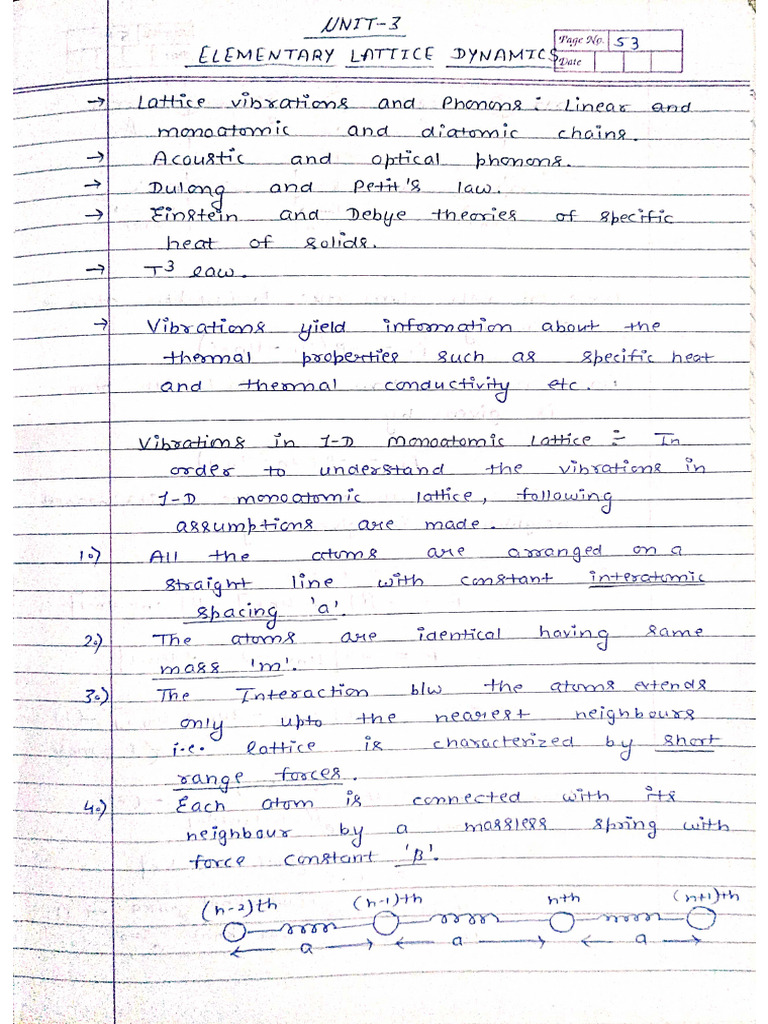 UNIT-3
ELEMENTARY LATTICE DYNAMICS
Page No. 53
Date
→ Lattice vibrations and Phonons : Linear and
monoatomic and diatomic chains.
→ Acoustic and optical phonons.
→ Dulong and Petit's law.
→ Einstein and Debye theories of specific
heat of solids.
→ T³ law.
→ Vibrations yield information about the
thermal properties such as specific heat
and thermal conductivity etc.
Vibrations in 1-D monoatomic lattice :- In
order to understand the vibrations in
1-D monoatomic lattice, following
assumptions are made.
1.) All the atoms are arranged on a
straight line with constant interatomic
spacing 'a'.
2.) The atoms are identical having same
mass 'm'.
3.) The Interaction b/w the atoms extends
only upto the nearest neighbours
i.e. lattice is characterized by short
range forces.
4.) Each atom is connected with its
neighbour by a massless spring with
force constant 'β'.
(n-2)th (n-1)th nth (n+1)th
a a a